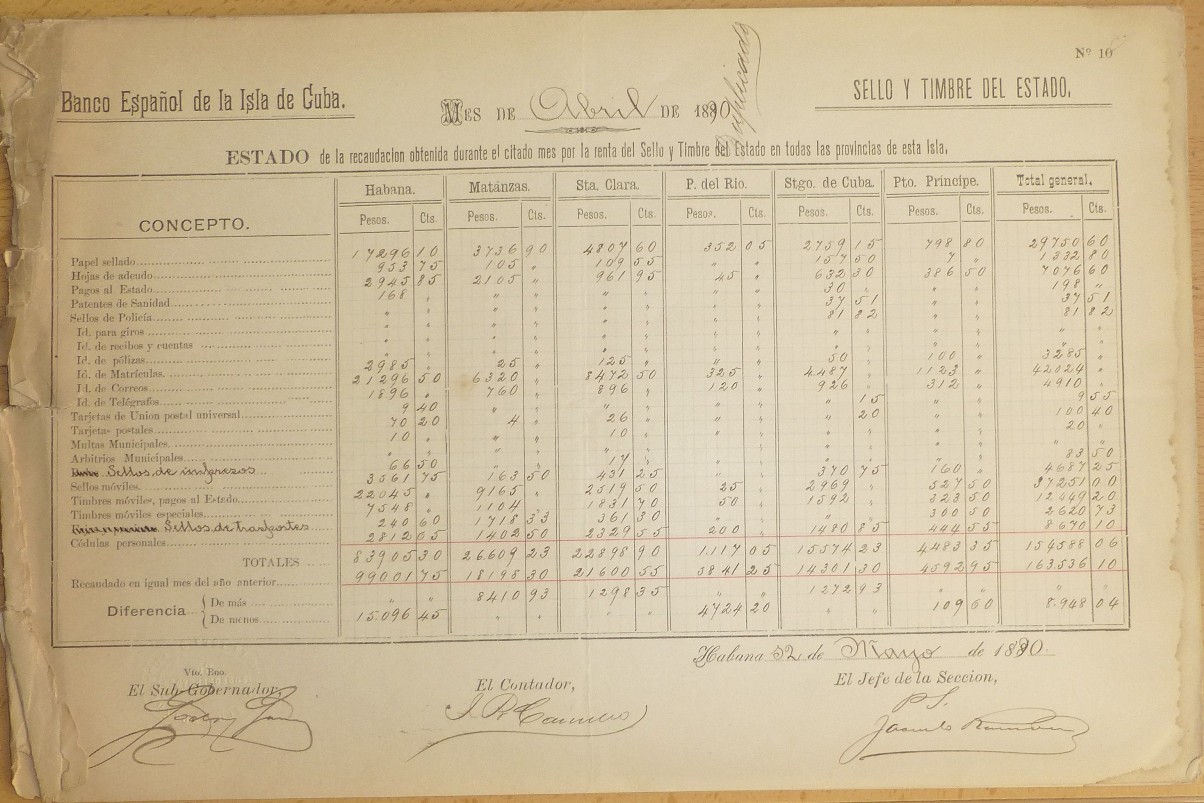 Nº 10
Banco Español de la Isla de Cuba.
MES DE Abril DE 1890
Duplicado
SELLO Y TIMBRE DEL ESTADO.
ESTADO de la recaudacion obtenida durante el citado mes por la renta del Sello y Timbre del Estado en todas las provincias de esta Isla.
CONCEPTO. Habana. Matánzas. Sta. Clara. P. del Rio. Stgo. de Cuba. Pto. Príncipe. Total general.
Pesos. Cts. Pesos. Cts. Pesos. Cts. Pesos. Cts. Pesos. Cts. Pesos. Cts. Pesos. Cts.
Papel sellado 17296 10 3736 90 4807 60 352 05 2759 15 798 80 29750 60
Hojas de adeudo 953 75 105 „ 109 55 „ „ 157 50 7 „ 1332 80
Pagos al Estado 2945 85 2105 „ 961 95 45 „ 632 30 386 50 7076 60
Patentes de Sanidad 168 „ „ „ „ „ „ „ 30 „ „ „ 198 „
Sellos de Policía „ „ „ „ „ „ „ „ 37 51 „ „ 37 51
Id. para giros „ „ „ „ „ „ „ „ 81 82 „ „ 81 82
Id. de recibos y cuentas „ „ „ „ „ „ „ „ „ „ „ „ „ „
Id. de pólizas „ „ „ „ „ „ „ „ „ „ „ „ „ „
Id. de Matrículas. 2985 „ 25 „ 125 „ „ „ 50 „ 100 „ 3285 „
Id. de Correos 21296 50 6320 „ 8472 50 325 „ 4487 „ 1123 „ 42024 „
Id. de Telégrafos 1896 „ 760 „ 896 „ 120 „ 926 „ 312 „ 4910 „
Tarjetas de Union postal universal 9 40 „ „ „ „ „ „ „ 15 „ „ 9 55
Tarjetas postales 70 20 4 „ 26 „ „ „ „ 20 „ „ 100 40
Multas Municipales 10 „ „ „ 10 „ „ „ „ „ „ „ 20 „
Arbitrios Municipales „ „ „ „ „ „ „ „ „ „ „ „ „ „
Sellos de impresos 66 50 „ „ 17 „ „ „ „ „ „ „ 83 50
Sellos móviles 3561 75 163 50 431 25 „ „ 370 75 160 „ 4687 25
Timbres móviles, pagos al Estado 22045 „ 9165 „ 2519 50 25 „ 2969 „ 527 50 37251 00
Timbres móviles especiales 7548 „ 1104 „ 1831 70 50 „ 1592 „ 323 50 12449 20
Sellos de trasportes 240 60 1718 33 361 30 „ „ „ „ 300 50 2620 73
Cédulas personales 2812 65 1402 50 2329 55 200 „ 1480 85 444 55 8670 10
TOTALES 83905 30 26.609 23 22898 90 1.117 05 15574 23 4483 35 154588 06
Recaudado en igual mes del año anterior 99001 75 18198 30 21600 55 5841 25 14301 30 4592 95 163536 10
Diferencia
De más „ „ 8410 93 1298 35 „ „ 1272 93 „ „ „ „
De menos 15.096 45 „ „ „ „ 4724 20 „ „ 109 60 8.948 04
Habana de Mayo de 1890.
Vto. Bno.
El Sub-Gobernador,
El Contador,
El Jefe de la Seccion,
P. S.